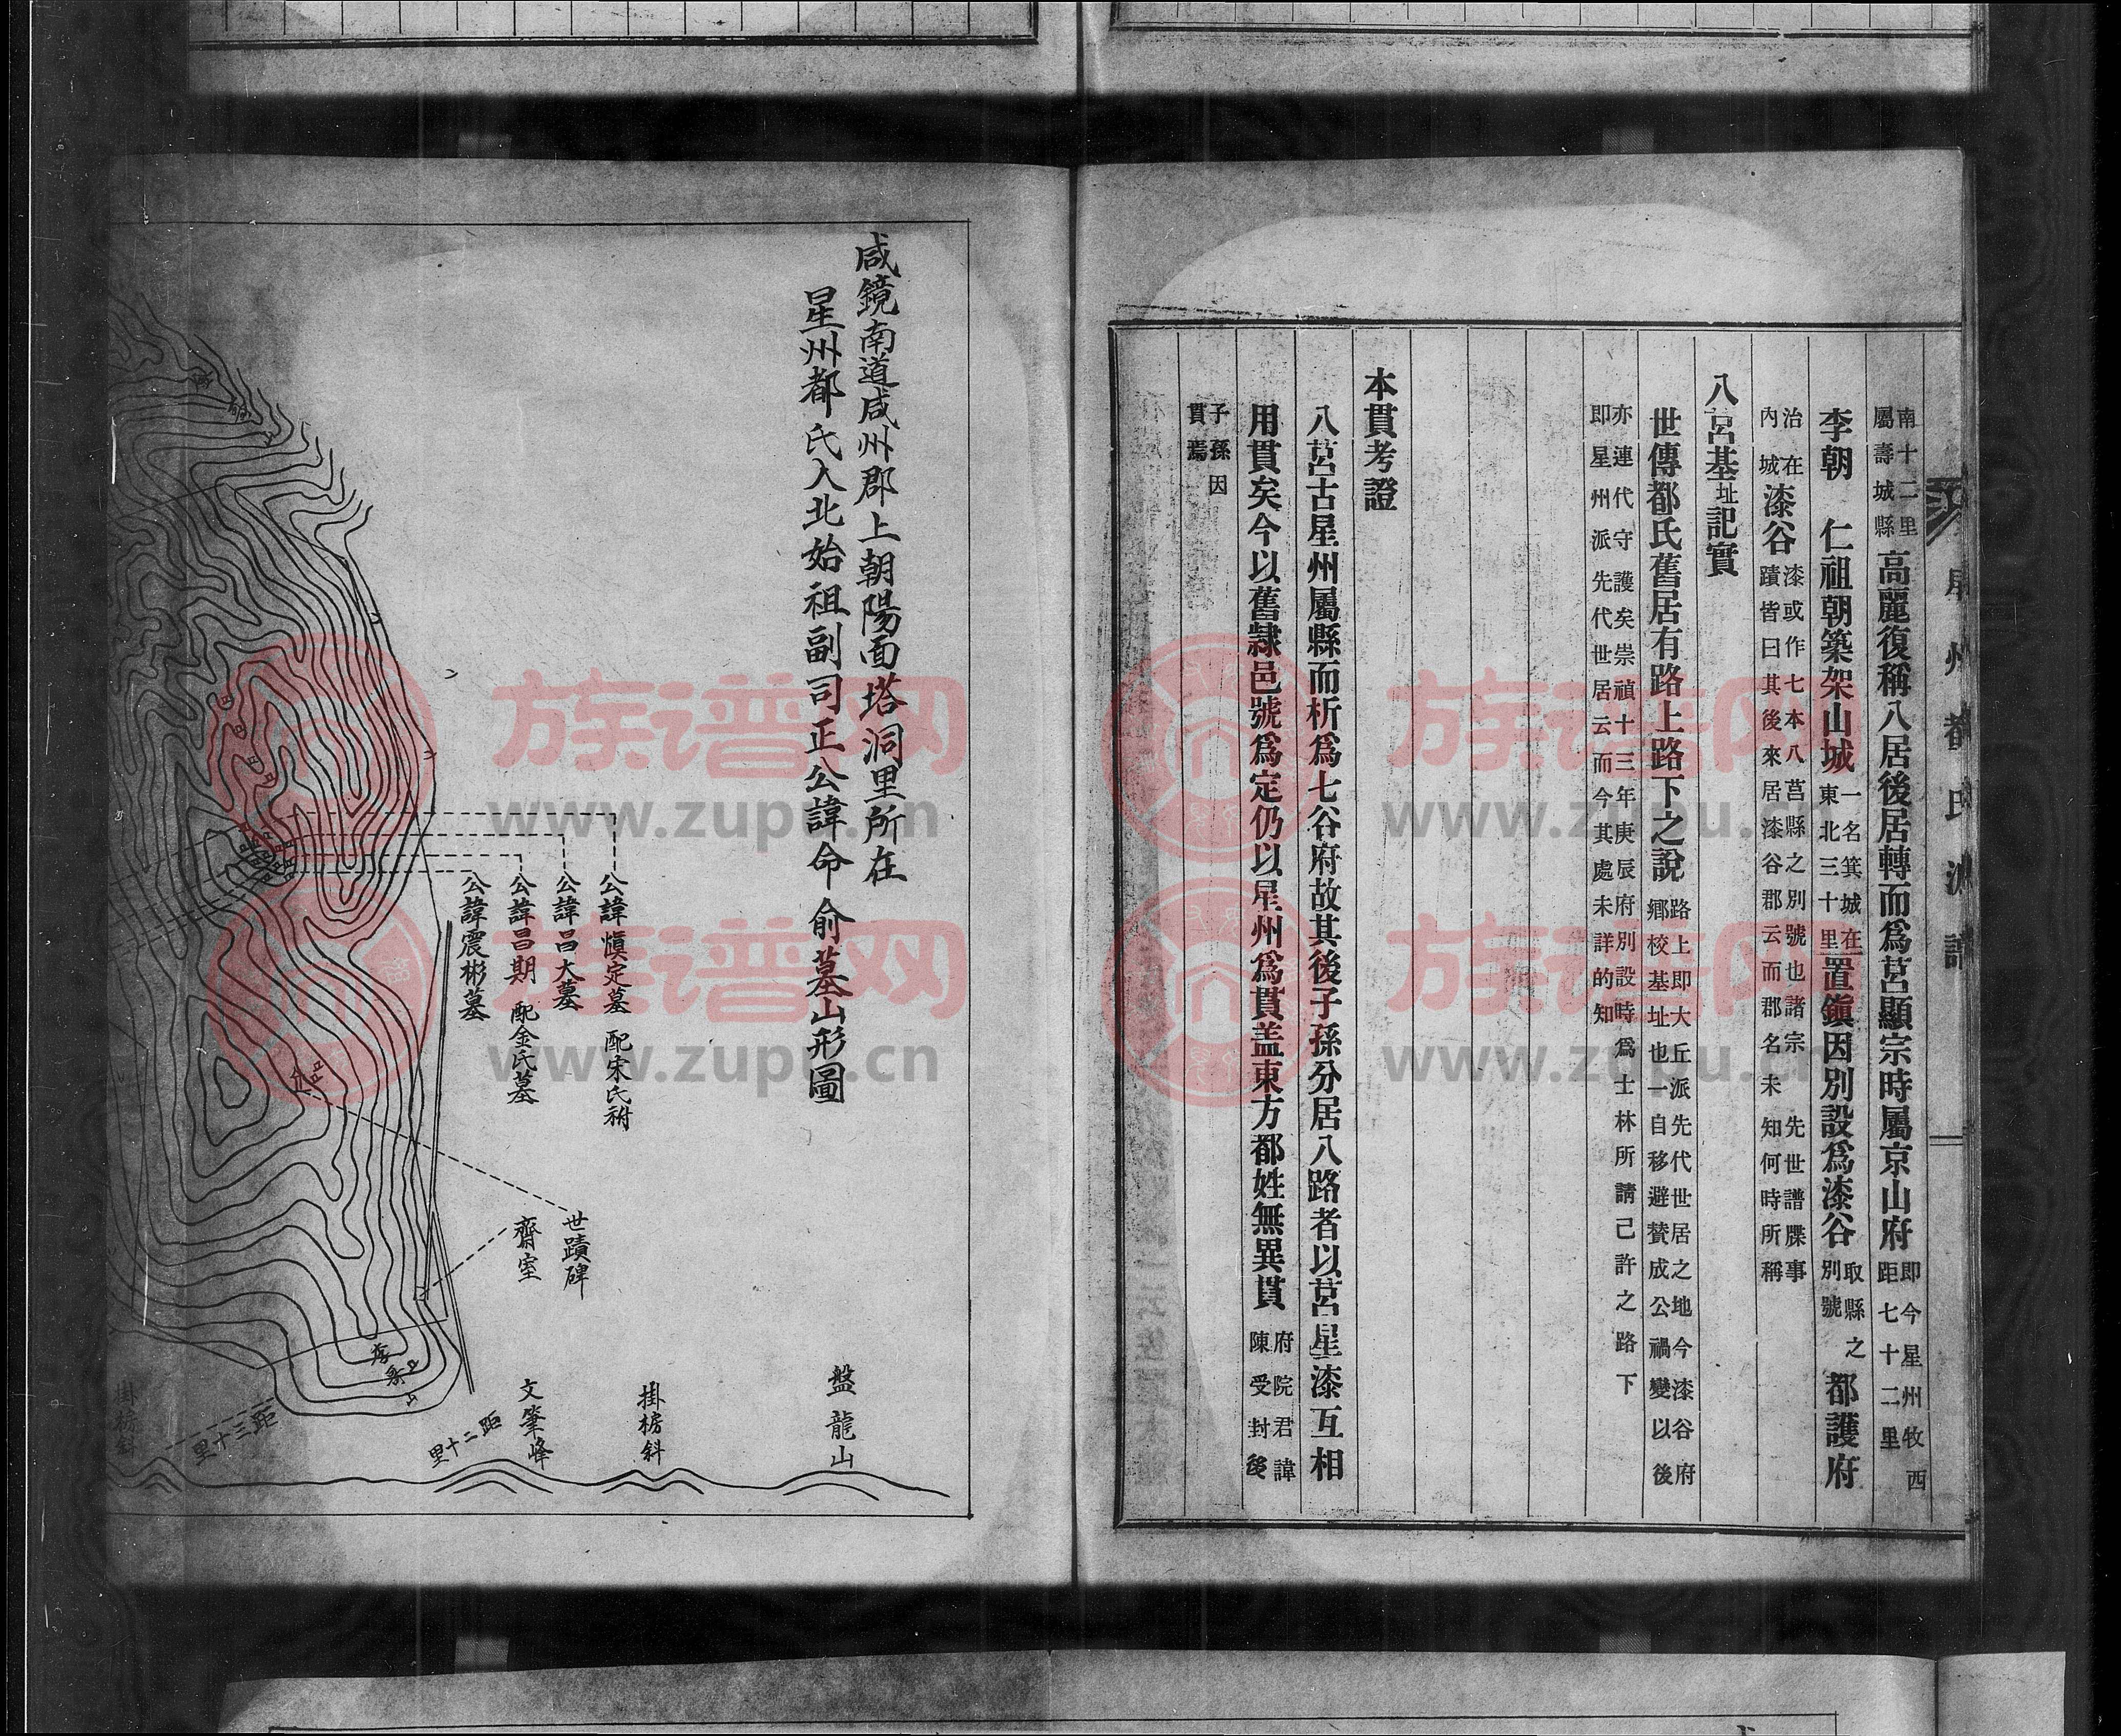 星州都氏派譜
一
南十二里
屬壽城縣
高麗復稱八居後居轉而爲莒顯宗時屬京山府
即今星州牧西
距七十二里
李朝 仁祖朝築架山城
一名箕城在
東北三十里
置鎭因別設爲漆谷
取縣之
別號
都護府
治在
內城
漆谷
漆或作七本八莒縣之別號也諸宗先世譜牒事
蹟皆曰其後來居漆谷郡云而郡名未知何時所稱
八莒基址記實
世傳都氏舊居有路上路下之說
路上即大丘派先代世居之地今漆谷府
鄕校基址也一自移避贊成公禍變以後
亦連代守護矣崇禎十三年庚辰府別設時爲士林所請己許之路下
即星州派先代世居云而今其處未詳的知
本貫考證
八莒古星州屬縣而析爲七谷府故其後子孫分居八路者以莒星漆互相
用貫矣今以舊隸邑號爲定仍以星州爲貫盖東方都姓無異貫
府院君諱
陳受封後
子孫因
貫焉
咸鏡南道咸州郡上朝陽面塔洞里所在
星州都氏入北始祖副司正公諱命俞墓山形圖
公諱愼定墓 配宋氏祔
公諱昌大墓
公諱昌期 配金氏墓
公諱震彬墓
世蹟碑
齋室
盤龍山
掛榜斜
文筆峰
距二十里
距三十里
掛榜斜
族谱网
www.zupu.cn
族谱网
www.zupu.cn
族谱网
www.zupu.cn
族谱网
www.zupu.cn